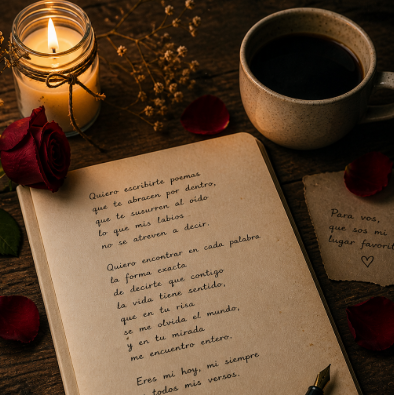 Quiero escribirte poemas
que te abracen por dentro,
que te susurren al oído
lo que mis labios
no se atreven a decir.
Quiero encontrar en cada palabra
la forma exacta
de decirte que contigo
la vida tiene sentido,
que en tu risa
se me olvida el mundo,
y en tu mirada
me encuentro entero.
Eres mi hoy, mi siempre
todos mis versos.
Para vos,
que sos mi
lugar favorit